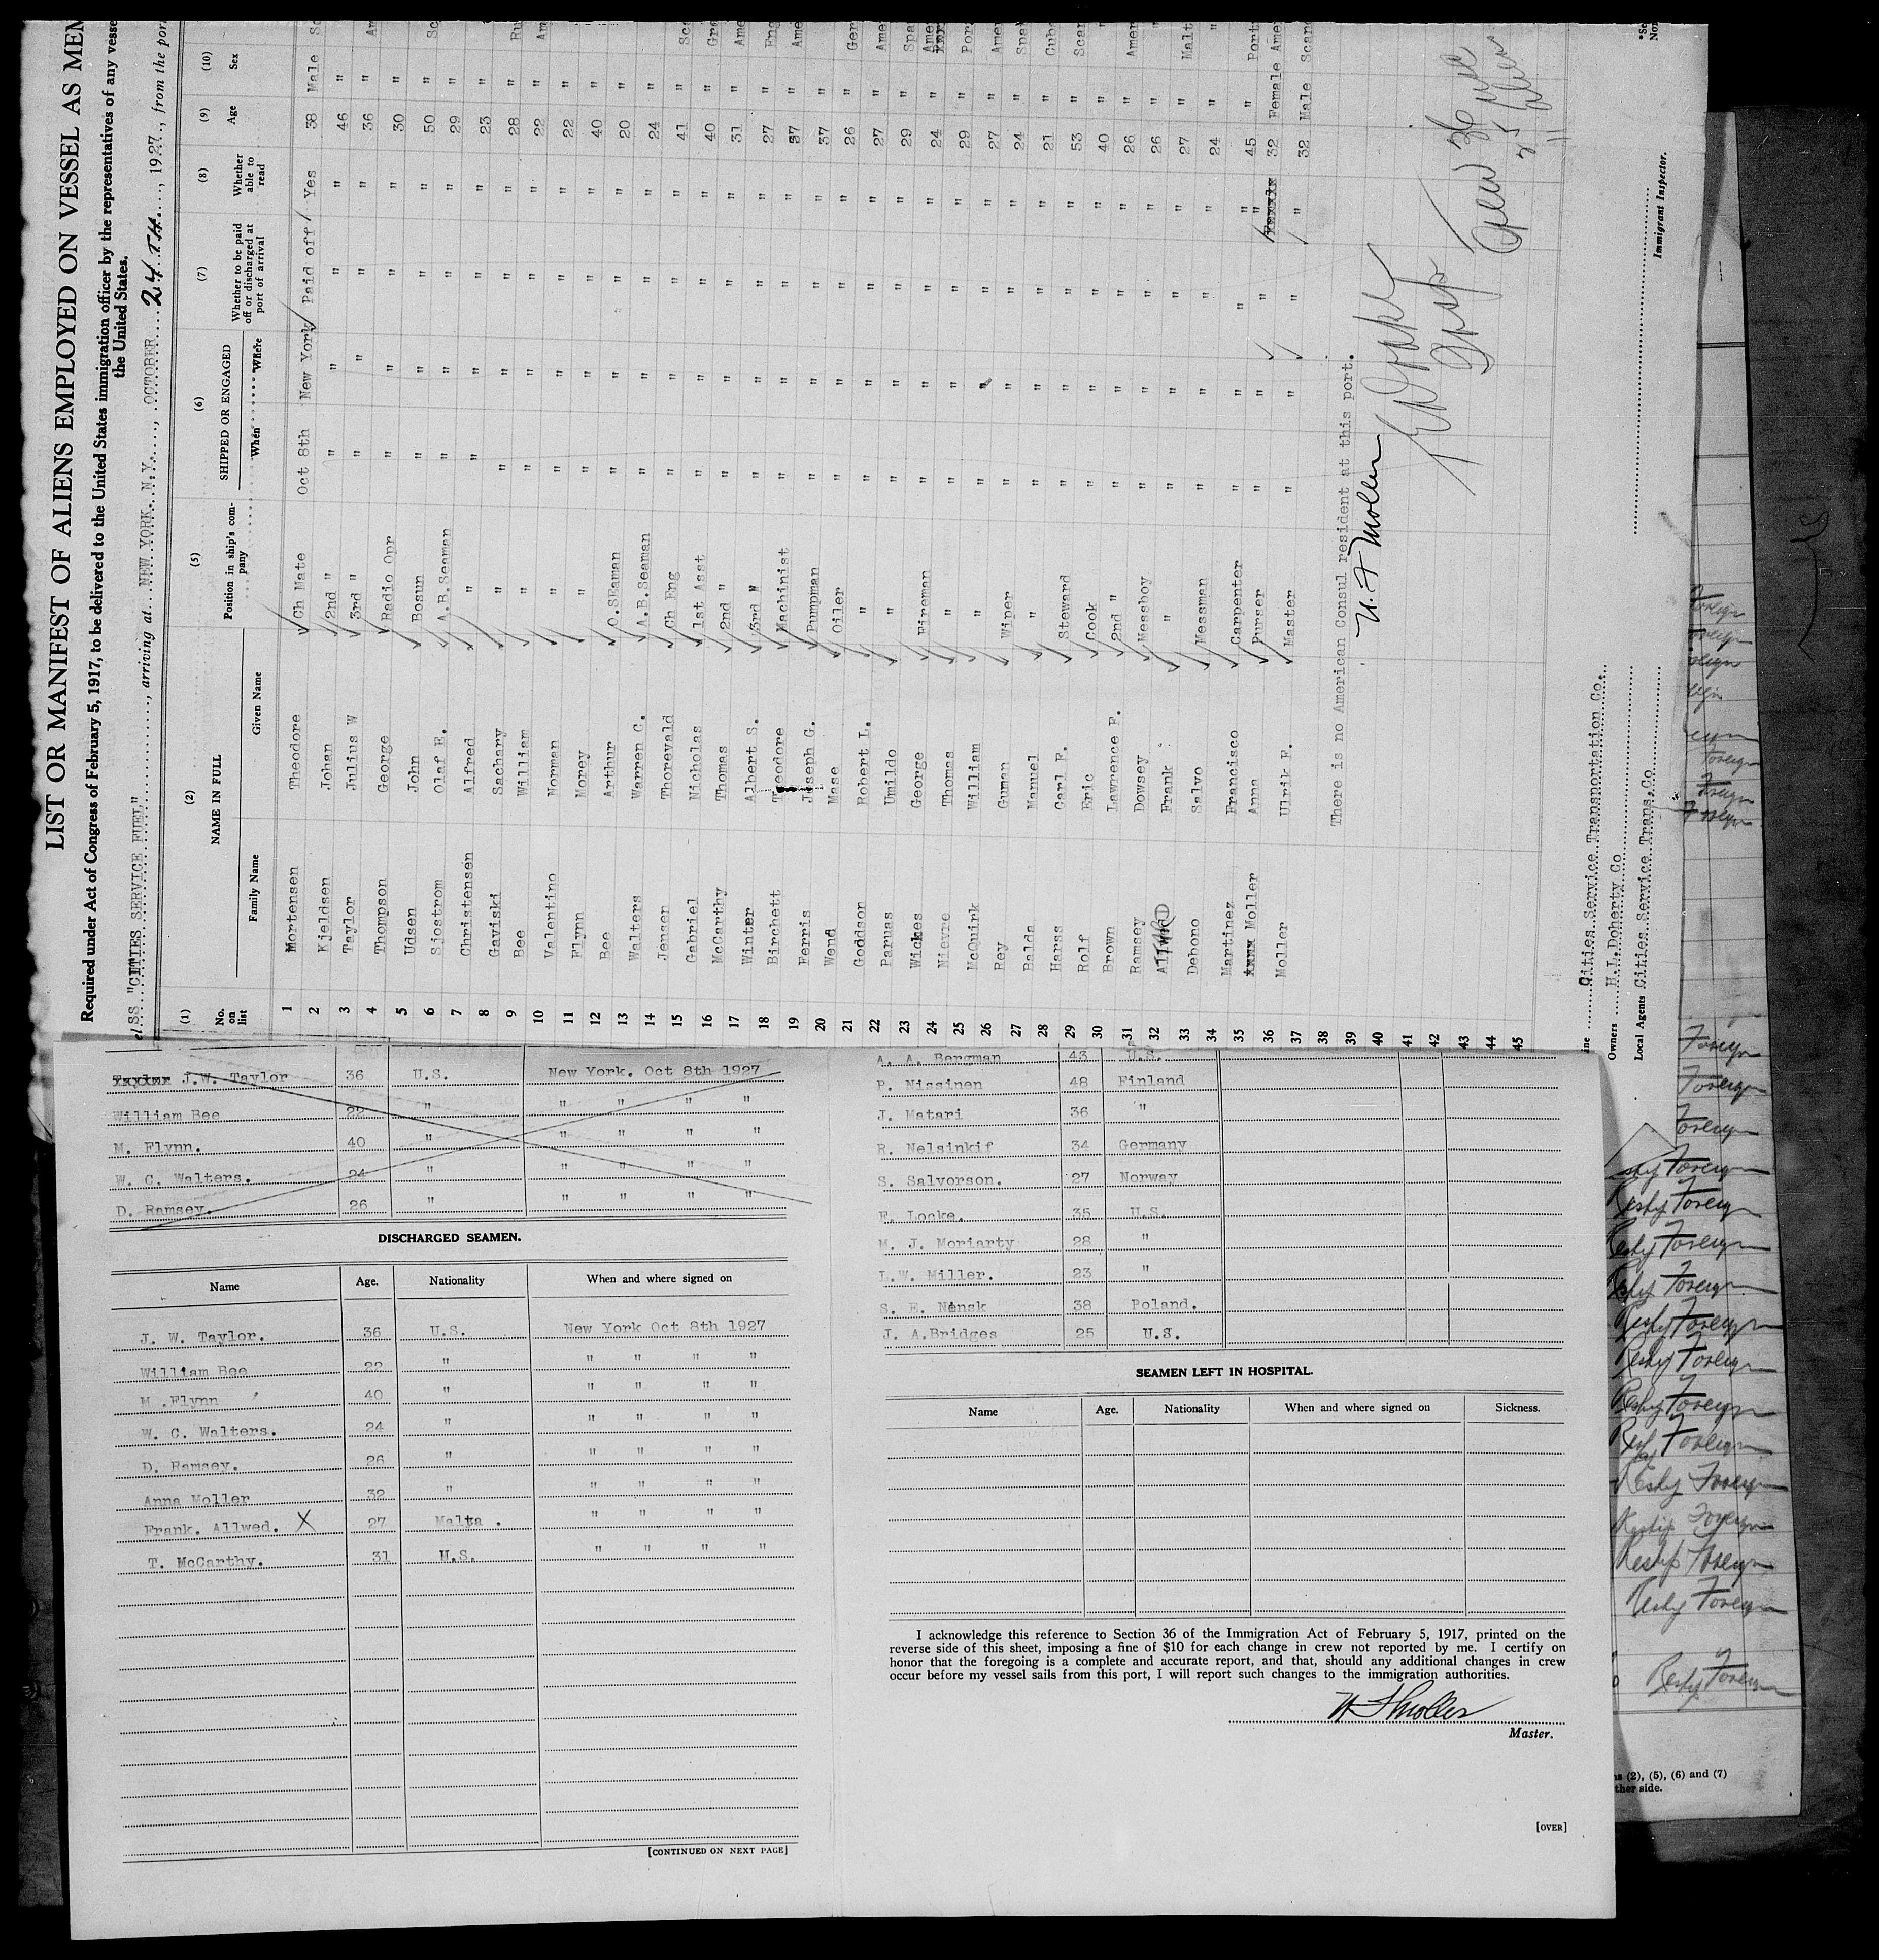 LIST OR MANIFEST OF ALIENS EMPLOYED ON VESSEL AS MEM
Required under Act of Congress of February 5, 1917, to be delivered to the United States immigration officer by the representatives of any vesse
the United States.
SS "CITIES SERVICE FUEL", arriving at NEW YORK N.Y., OCTOBER 24TH, 1927, from the por
(1) (2) (5) (6) (7) (8) (9) (10)
No. on list NAME IN FULL Position in ship's company SHIPPED OR ENGAGED Whether to be paid off or discharged at port of arrival Whether able to read Age Sex
Family Name Given Name When Where
1 Mortensen Theodore Ch Mate Oct 8th New York Paid off Yes 38 Male Sc
2 Kjeldsen Johan 2nd " " " " " 46 "
3 Taylor Julius W 3rd " " " " " 36 " Am
4 Thompson George Radio Opr " " " " 30 "
5 Udsen John Bosun " " " " 50 " Sc
6 Sjostrom Olaf E. A.B.Seaman " " " " 29 "
7 Christensen Alfred " " " " " 23 "
8 Gaviski Sachary " " " " " 28 " Ru
9 Bee William " " " " " 22 " Am
10 Valentino Norman " " " " " 22 "
11 Flynn Morey " " " " " 40 "
12 Bee Arthur O.SEaman " " " " 20 "
13 Walters Warren C. A.B.Seaman " " " " 24 "
14 Jensen Thorevald Ch Eng " " " " 41 " Sca
15 Gabriel Nicholas 1st Asst " " " " 40 " Gre
16 McCarthy Thomas 2nd " " " " " 31 " Ame
17 Winter Albert S. 3rd " " " " " 27 " Eng
18 Birchett Teodore Machinist " " " " 37 " Ame
19 Ferris Joseph G. Pumpman " " " " 37 "
20 Wend Mase Oiler " " " " 26 " Ger
21 Goddson Robert L. " " " " " 27 " Ame
22 Paruas Umildo " " " " " 29 " Spa
23 Wickes George Fireman " " " " 24 " Amer
24 Nievre Thomas " " " " " 29 " Por
25 McQuirk William " " " " " 27 " Ame
26 Rey Guman Wiper " " " " 24 " Spa
27 Balda Manuel " " " " " 21 " Cub
28 Harss Carl F. Steward " " " " 53 " Scar
29 Rolf Eric Cook " " " " 40 " "
30 Brown Lawrence F. 2nd " " " " " 26 " Amer
31 Ramsey Dowsey Messboy " " " " 26 " "
32 Frank " " " " " 27 " Malt
33 Debono Salvo Messman " " " " 24 " "
34 Martinez Francisco Carpenter " " " " 45 " Port
35 Moller Anna Purser " " " " 32 Female Amer
36 Moller Ulrik F. Master " " " " 32 Male Scan
37
38
39
40
41
42
43
44
45
There is no American Consul resident at this port.
U. F Moller
Crew 36
Cities Service Transportation Co.
Owners H.L.Doherty Co
Local Agents Cities Service Trans.Co
Immigrant Inspector.
J.W. Taylor 36 U.S. New York. Oct 8th 1927
William Bee 22 " " " " "
M. Flynn. 40 " " " " "
W. C. Walters. 24 " " " " "
D. Ramsey. 26 " " " " "
DISCHARGED SEAMEN.
Name Age. Nationality When and where signed on
J. W. Taylor. 36 U.S. New York Oct 8th 1927
William Bee 22 " " " " "
M .Flynn 40 " " " " "
W. C. Walters. 24 " " " " "
D. Ramsey. 26 " " " " "
Anna Moller 32 " " " " "
Frank. Allwed. X 27 Malta . " " " "
T. McCarthy. 31 U.S. " " " "
[CONTINUED ON NEXT PAGE]
A. A. Bergman 43 U.S.
P. Nissinen 48 Finland
J. Matari 36 "
R. Nelsinkif 34 Germany
S. Salvorson. 27 Norway
F. Locke. 35 U.S.
M. J. Moriarty 28 "
L.W. Miller. 23 "
S. E. Nensk 38 Poland.
J. A.Bridges 25 U.S.
SEAMEN LEFT IN HOSPITAL.
Name Age. Nationality When and where signed on Sickness.
I acknowledge this reference to Section 36 of the Immigration Act of February 5, 1917, printed on the
reverse side of this sheet, imposing a fine of $10 for each change in crew not reported by me. I certify on
honor that the foregoing is a complete and accurate report, and that, should any additional changes in crew
occur before my vessel sails from this port, I will report such changes to the immigration authorities.
U F Moller
Master.
[OVER]
(2), (5), (6) and (7)
ther side.
Foreign
Foreign
Foreign
Foreign
Foreign
Foreign
Foreign
Foreign